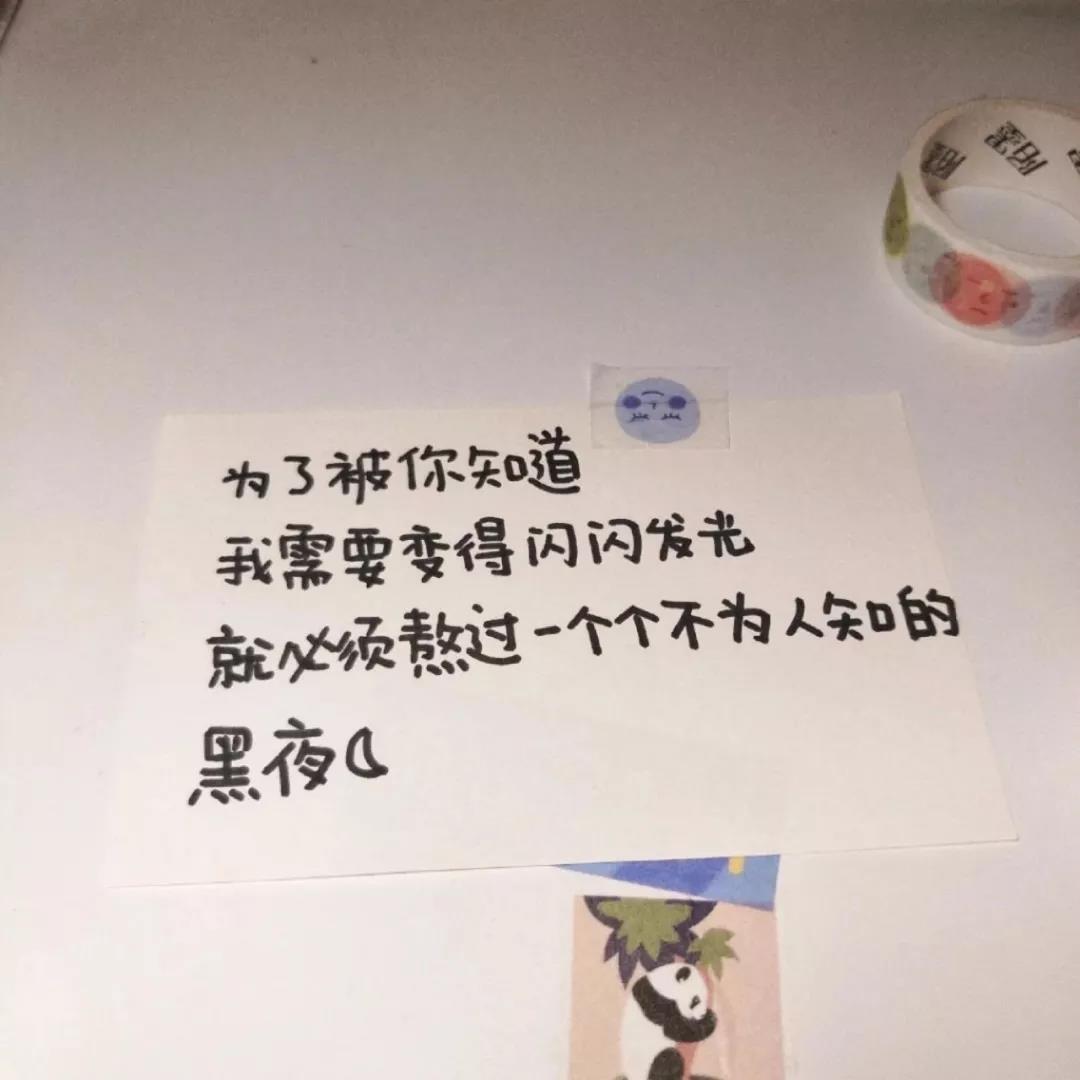 为了被你知道
我需要变得闪闪发光
就必须熬过一个个不为人知的
黑夜